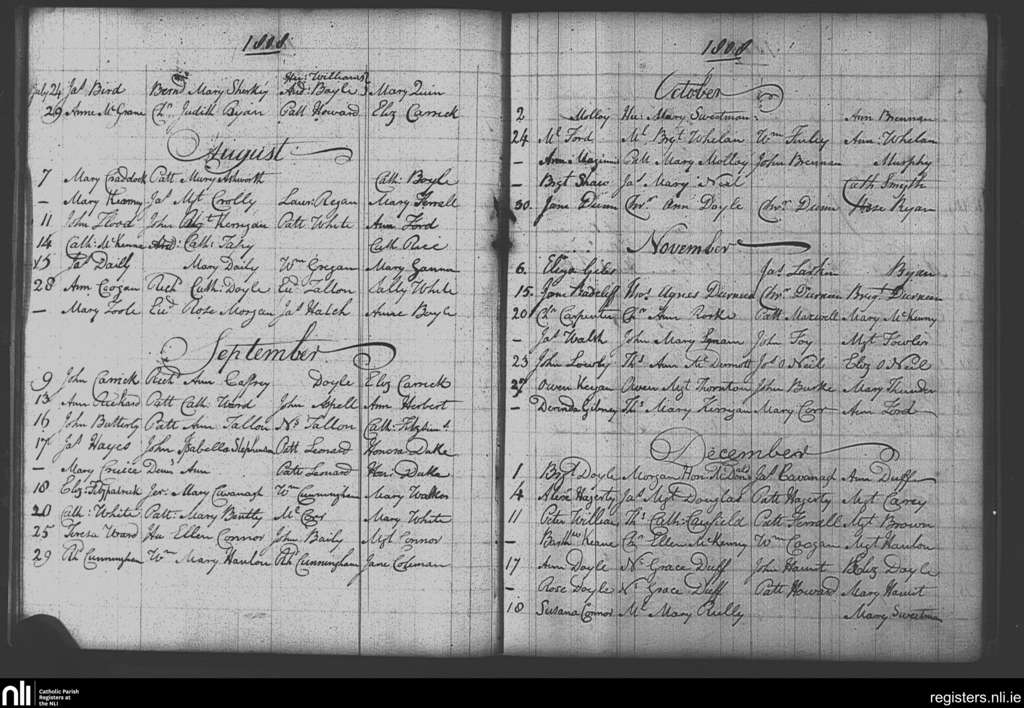 1808.
July 24 Jas Bird Bernd Mary Sherkey And: Boyle Mary Quin
29 Anne McGrane Chr. Judith Ryan Patt Howard Eliz Carrick
August
7 Mary Craddock Patt Mary Ashworth Cath: Boyle
– Mary Kearny Jas Mgt Crolly Laur: Regan Mary Ferrell
11 John Flood John Kernigan Patt White Ann Ford
14 Cath: McKenna And: Cath: Cath
15 Jas Daily Mary Daily Wm Gregan Mary Ganna
28 Ann Coogan Rich Cath: Doyle Ed Fallon Sally White
– Mary Toole Ed Rose Morgan Jas Hatch Anne Boyle
September
9 John Carrick Rich Ann Caffrey Doyle Eliz Carrick
13 Ann Richard Patt Cath: Ward John Aspell Ann Herbert
16 John Butterly Patt Ann Fallon Ns Fallon Cath:
17 Jas Hayes John Isabella Patt Leonard Honora Duke
– Mary Denis Ann Patt Leonard Hon: Duke
18 Eliz: Fitzpatrick Jer: Mary Cavanagh Wm Cunningham Mary Walker
20 Cath: White Patt Mary Beatty Ml Mary White
25 Teresa Ward Hu Ellen Connor John Baily Mgt Connor
29 Pk Cunningham Wm Mary Hanlon Pk Cunningham Jane Coleman
1808
October
2 Molloy Hu: Mary Sweetman: Ann Brennan
24 Ml Ford Ml Brgt Whelan Wm Finley Ann: Whelan
– Ann Patt Mary Molloy John Brennan Murphy
– Brgt Shaw Jas Mary Neil Cath Smyth
30. Jane Dunn Chrr Ann Doyle Chrr Dunn Rose Ryan
November
6. Eliza Giles Jas Larkin Ryan
15. Jane Radcliff Thos Agnes Durneen Chrr Durneen Brigt Durneen
20 Chr Carpenter Chr Ann Rorke Patt Maxwell Mary McKenny
– Jas Walsh John Mary John Foy Mgt Fowler
23 John Thos Ann McDermott Jas O Neil Eliz O Neil
27 Owen Keegan Owen Mgt Thornton John Burke Mary
– Dorinda Gibney Thos Mary Kerrigan Mary Corr Ann Ford
December
1 Brgt Doyle Morgan Hon: McDonald Jas Cavanagh Ann Duff
4 Alice Hagerty Jas Mgt Douglas Patt Hagerty Mgt Carey
11 Peter William Thos Cath: Caufield Patt Ferrall Mgt Brown
– Barthw Keane Chr Ellen McKenny Wm Coogan Mgt Hanlon
17 Ann Doyle Ns Grace Duff John Eliz Doyle
– Rose Doyle Ns Grace Duff Patt Howard Mary
18 Susana Connor Ml Mary Reilly Mary Sweetman
nli Catholic Parish Registers at the NLI
registers.nli.ie